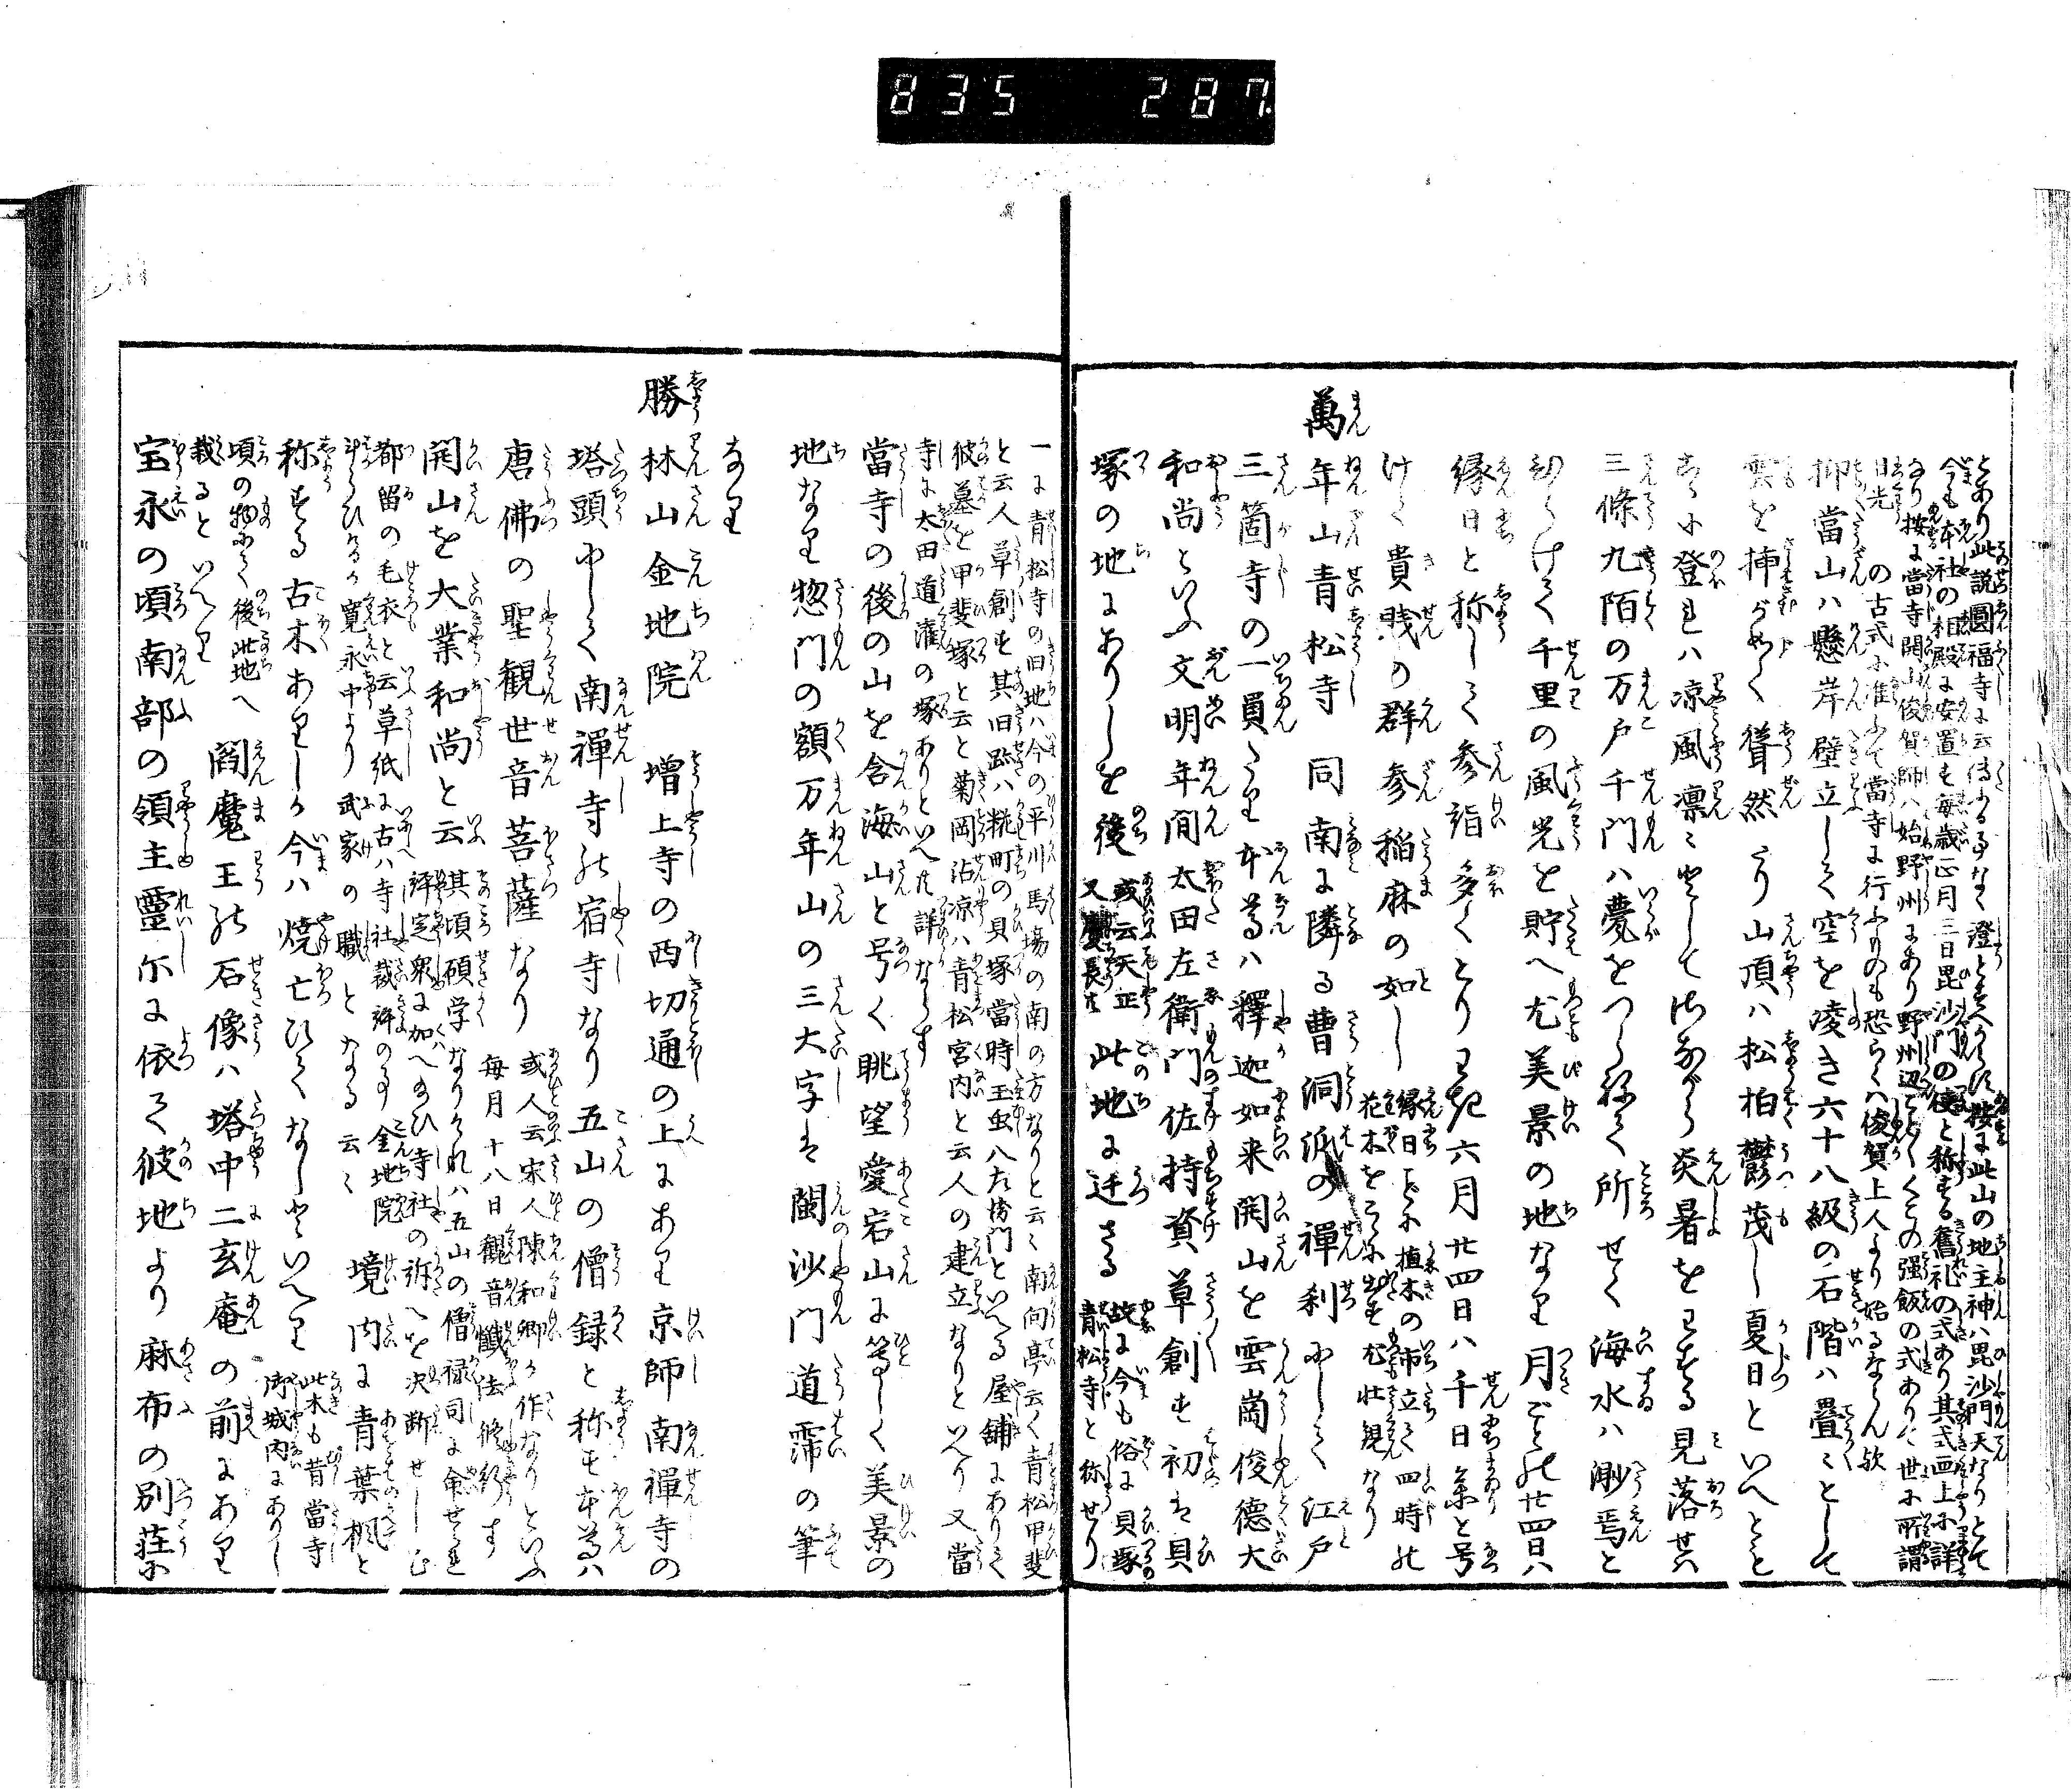 835 287
とあり此説圓福寺に云伝ふる事なく澄とすへからす按に此山の地主神ハ毘沙門天なりとて
今も本社の相殿に安置す毎歳正月三日毘沙門の使と称する舊礼の式あり其式画上に詳
なり按に當寺開山俊賀師ハ始野州にあり野州辺ことくくこの強飯の式ありて世に所謂
日光の古式に准ふて當寺に行ふものも恐らくハ俊賀上人より始るならん歟
抑當山ハ懸岸壁立して空を凌き六十八級の石階ハ疊々として
雲を挿がめく聳然たり山頂ハ松柏鬱茂し夏日といへとも
こゝに登れハ凉風凛々としてさながら炎暑をわする見落せハ
三條九陌の万戸千門ハ甍をつらねて所せく海水ハ渺焉と
ひらけて千里の風光を貯へ尤美景の地なり月ごとの廿四日ハ
縁日と称して参詣多くとりわき六月廿四日ハ千日参と号
けて貴賎の群参稲麻の如し縁日ことに植木の市立て四時の
花木をこゝに出す尤壮観なり
萬年山青松寺 同南に隣る曹洞派の禅刹にして江戸
三箇寺の一員たり本尊ハ釋迦如来開山を雲崗俊徳大
和尚といふ文明年間太田左衛門佐持資草創す初は貝
塚の地にありしを後或云天正又慶長共此地に迁さる故に今も俗に貝塚の
青松寺と称せり
一に青松寺の旧地ハ今の平川馬場の南の方なりと云々南向亭云く青松甲斐
と云人草創す其旧跡ハ糀町の貝塚當時玉虫八左衛門といへる屋舗にありて
彼墓を甲斐塚と云と菊岡沾凉ハ青松宮内と云人の建立なりといへり又當
寺に太田道灌の塚ありといへ共詳ならす
當寺の後の山を含海山と号く眺望愛宕山に等しく美景の
地なり惣門の額万年山の三大字は閩沙門道霈の筆
なり
勝林山金地院 増上寺の西切通の上にあり京師南禅寺の
塔頭にして南禅寺の宿寺なり五山の僧録と称す本尊ハ
唐佛の聖観世音菩薩なり或人云宋人陳和卿か作なりといふ
毎月十八日観音懺法修行す
開山を大業和尚と云其頃碩学なりけれハ五山の僧禄司に命せられ
評定衆に加へ給ひ寺社の訴へを決断せしむ
都留の毛衣と云草紙に古ハ寺社裁許の事金地院
斗らひけるか寛永中より武家の職となる云々境内に青葉楓と
称する古木ありしか今ハ焼亡ひてなしといへり此木も昔當寺
御城内にありし
頃の物にて後此地へ
栽るといへり閻魔王の石像ハ塔中二玄庵の前にあり
宝永の頃南部の領主靈示に依て彼地より麻布の別荘に